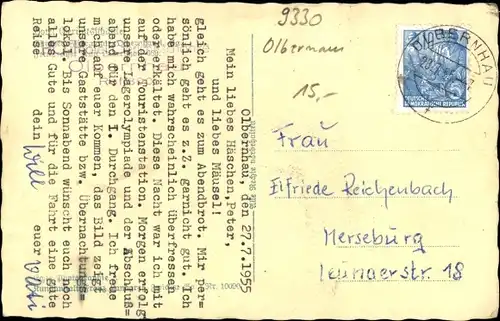 9330
Olbernhau
15,-
OLBERNHAU
DEUTSCHE
DEMOKRATISCHE REPUBLIK
Olbernhau, den 27.7.1955
Mein liebes Häschen, Peter,
und liebes Mäusel!
gleich geht es zum Abendbrot. Mir per-
sönlich geht es z.Z. garnicht gut. Ich
habe mich wahrscheinlich überfressen
oder erkältet. Diese Nacht war ich mit
auf der Touristenstation. Morgen erfolgt
unsere Lagerolympiade und der Abschluß-
abend für den I. Durchgang. Ich freue
mich auf euer Kommen, das Bild zeigt
unsere Gaststätte bzw. Übernachtungs-
lokal. Bis Sonnabend wünscht euch noch
alles Gute und für die Fahrt eine gute
Reise
dein Willi
euer Vati
Frau
Elfriede Reichenbach
Merseburg
Leunaerstr. 18